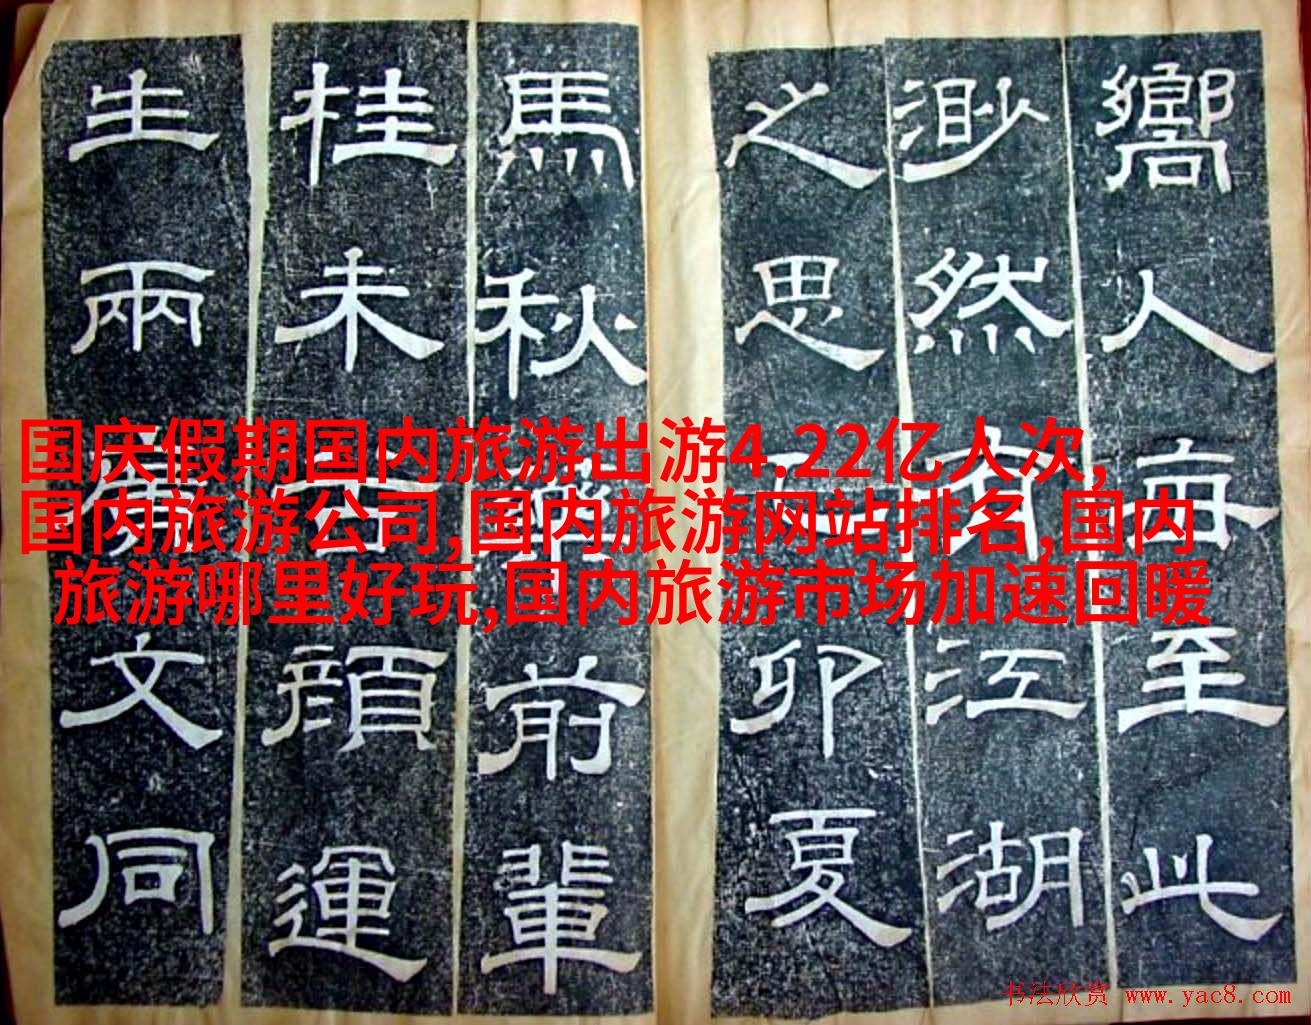 嚮人每至此
渺然有江湖
之思卯夏
馬秋前輩
桂未顏運
生兩文同
国庆假期国内旅游出游4.22亿人次,
国内旅游公司,国内旅游网站排名,国内
旅游哪里好玩,国内旅游市场加速回暖
书法欣赏 www.yac8.com